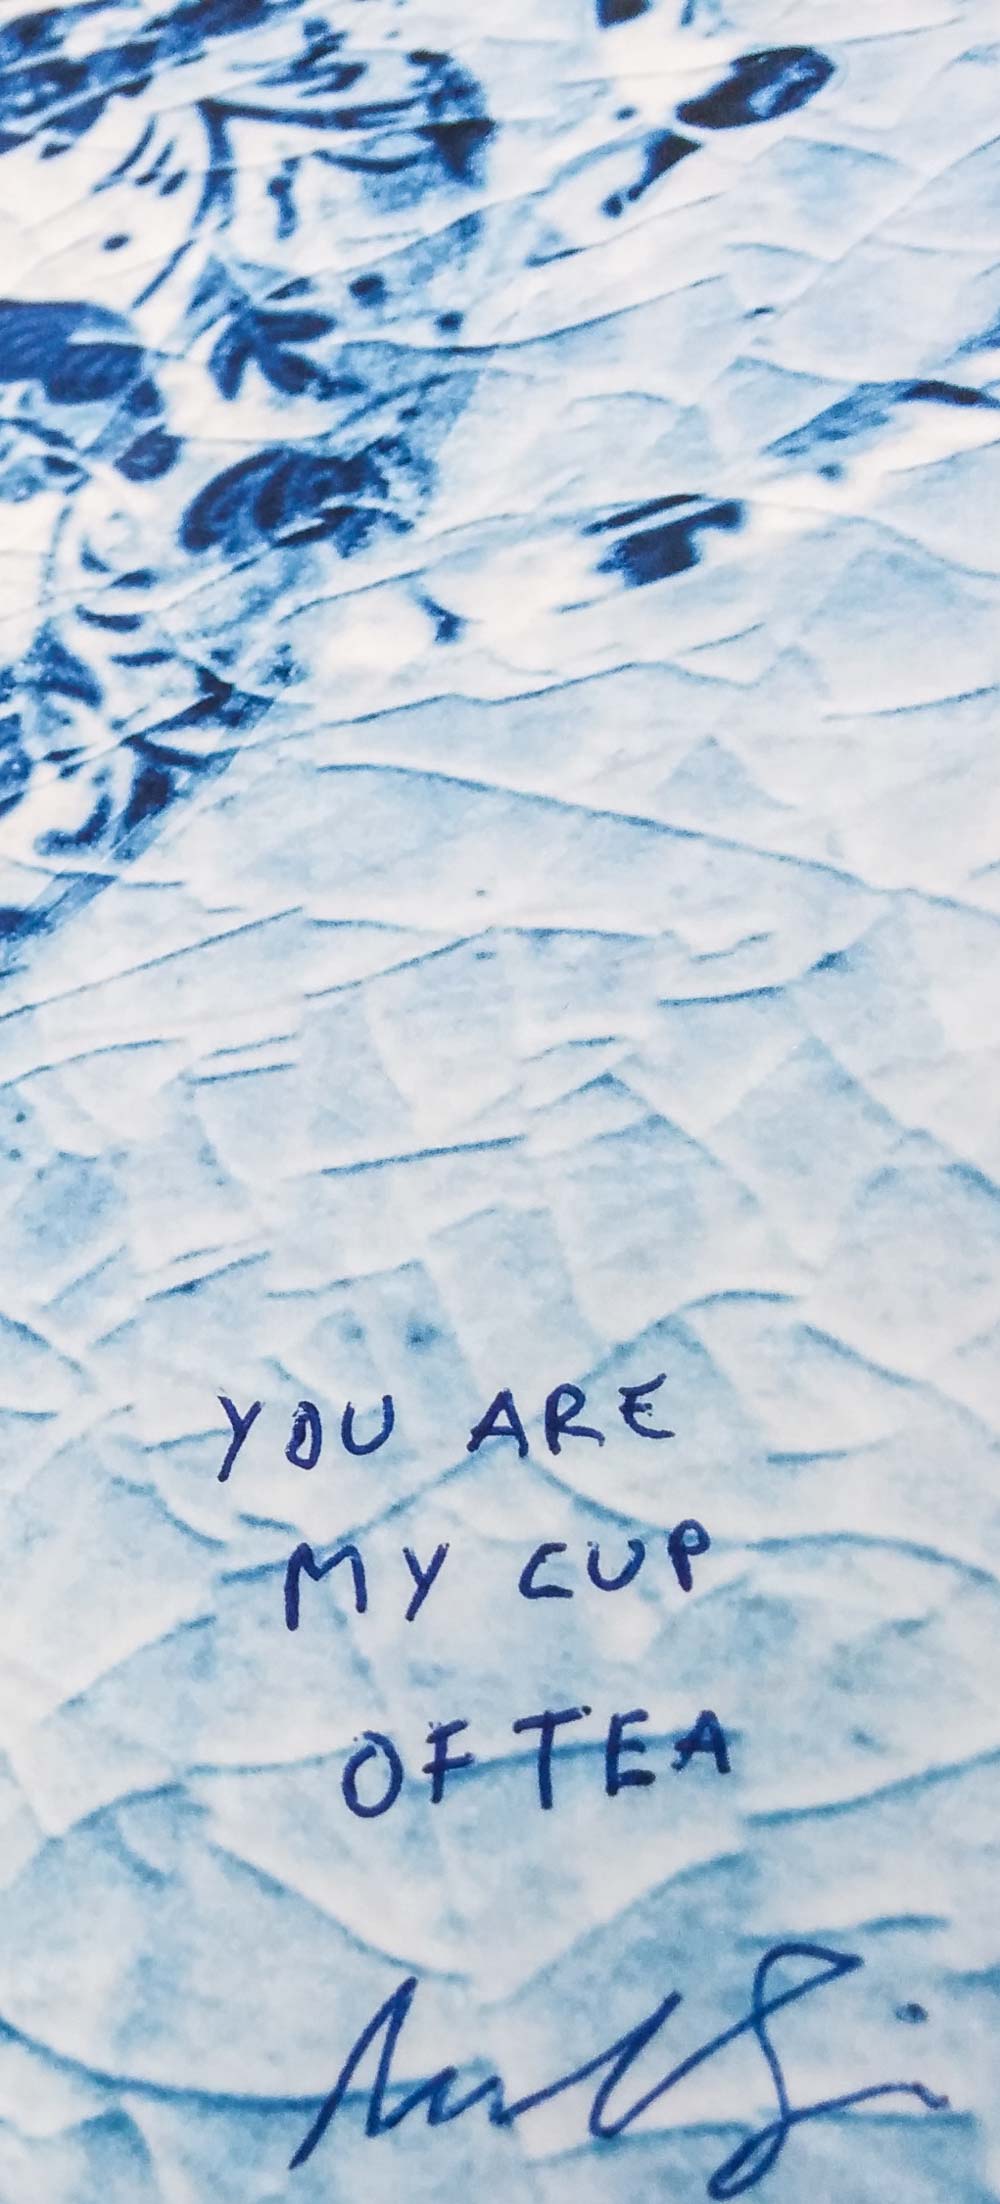 YOU ARE
MY CUP
OF TEA